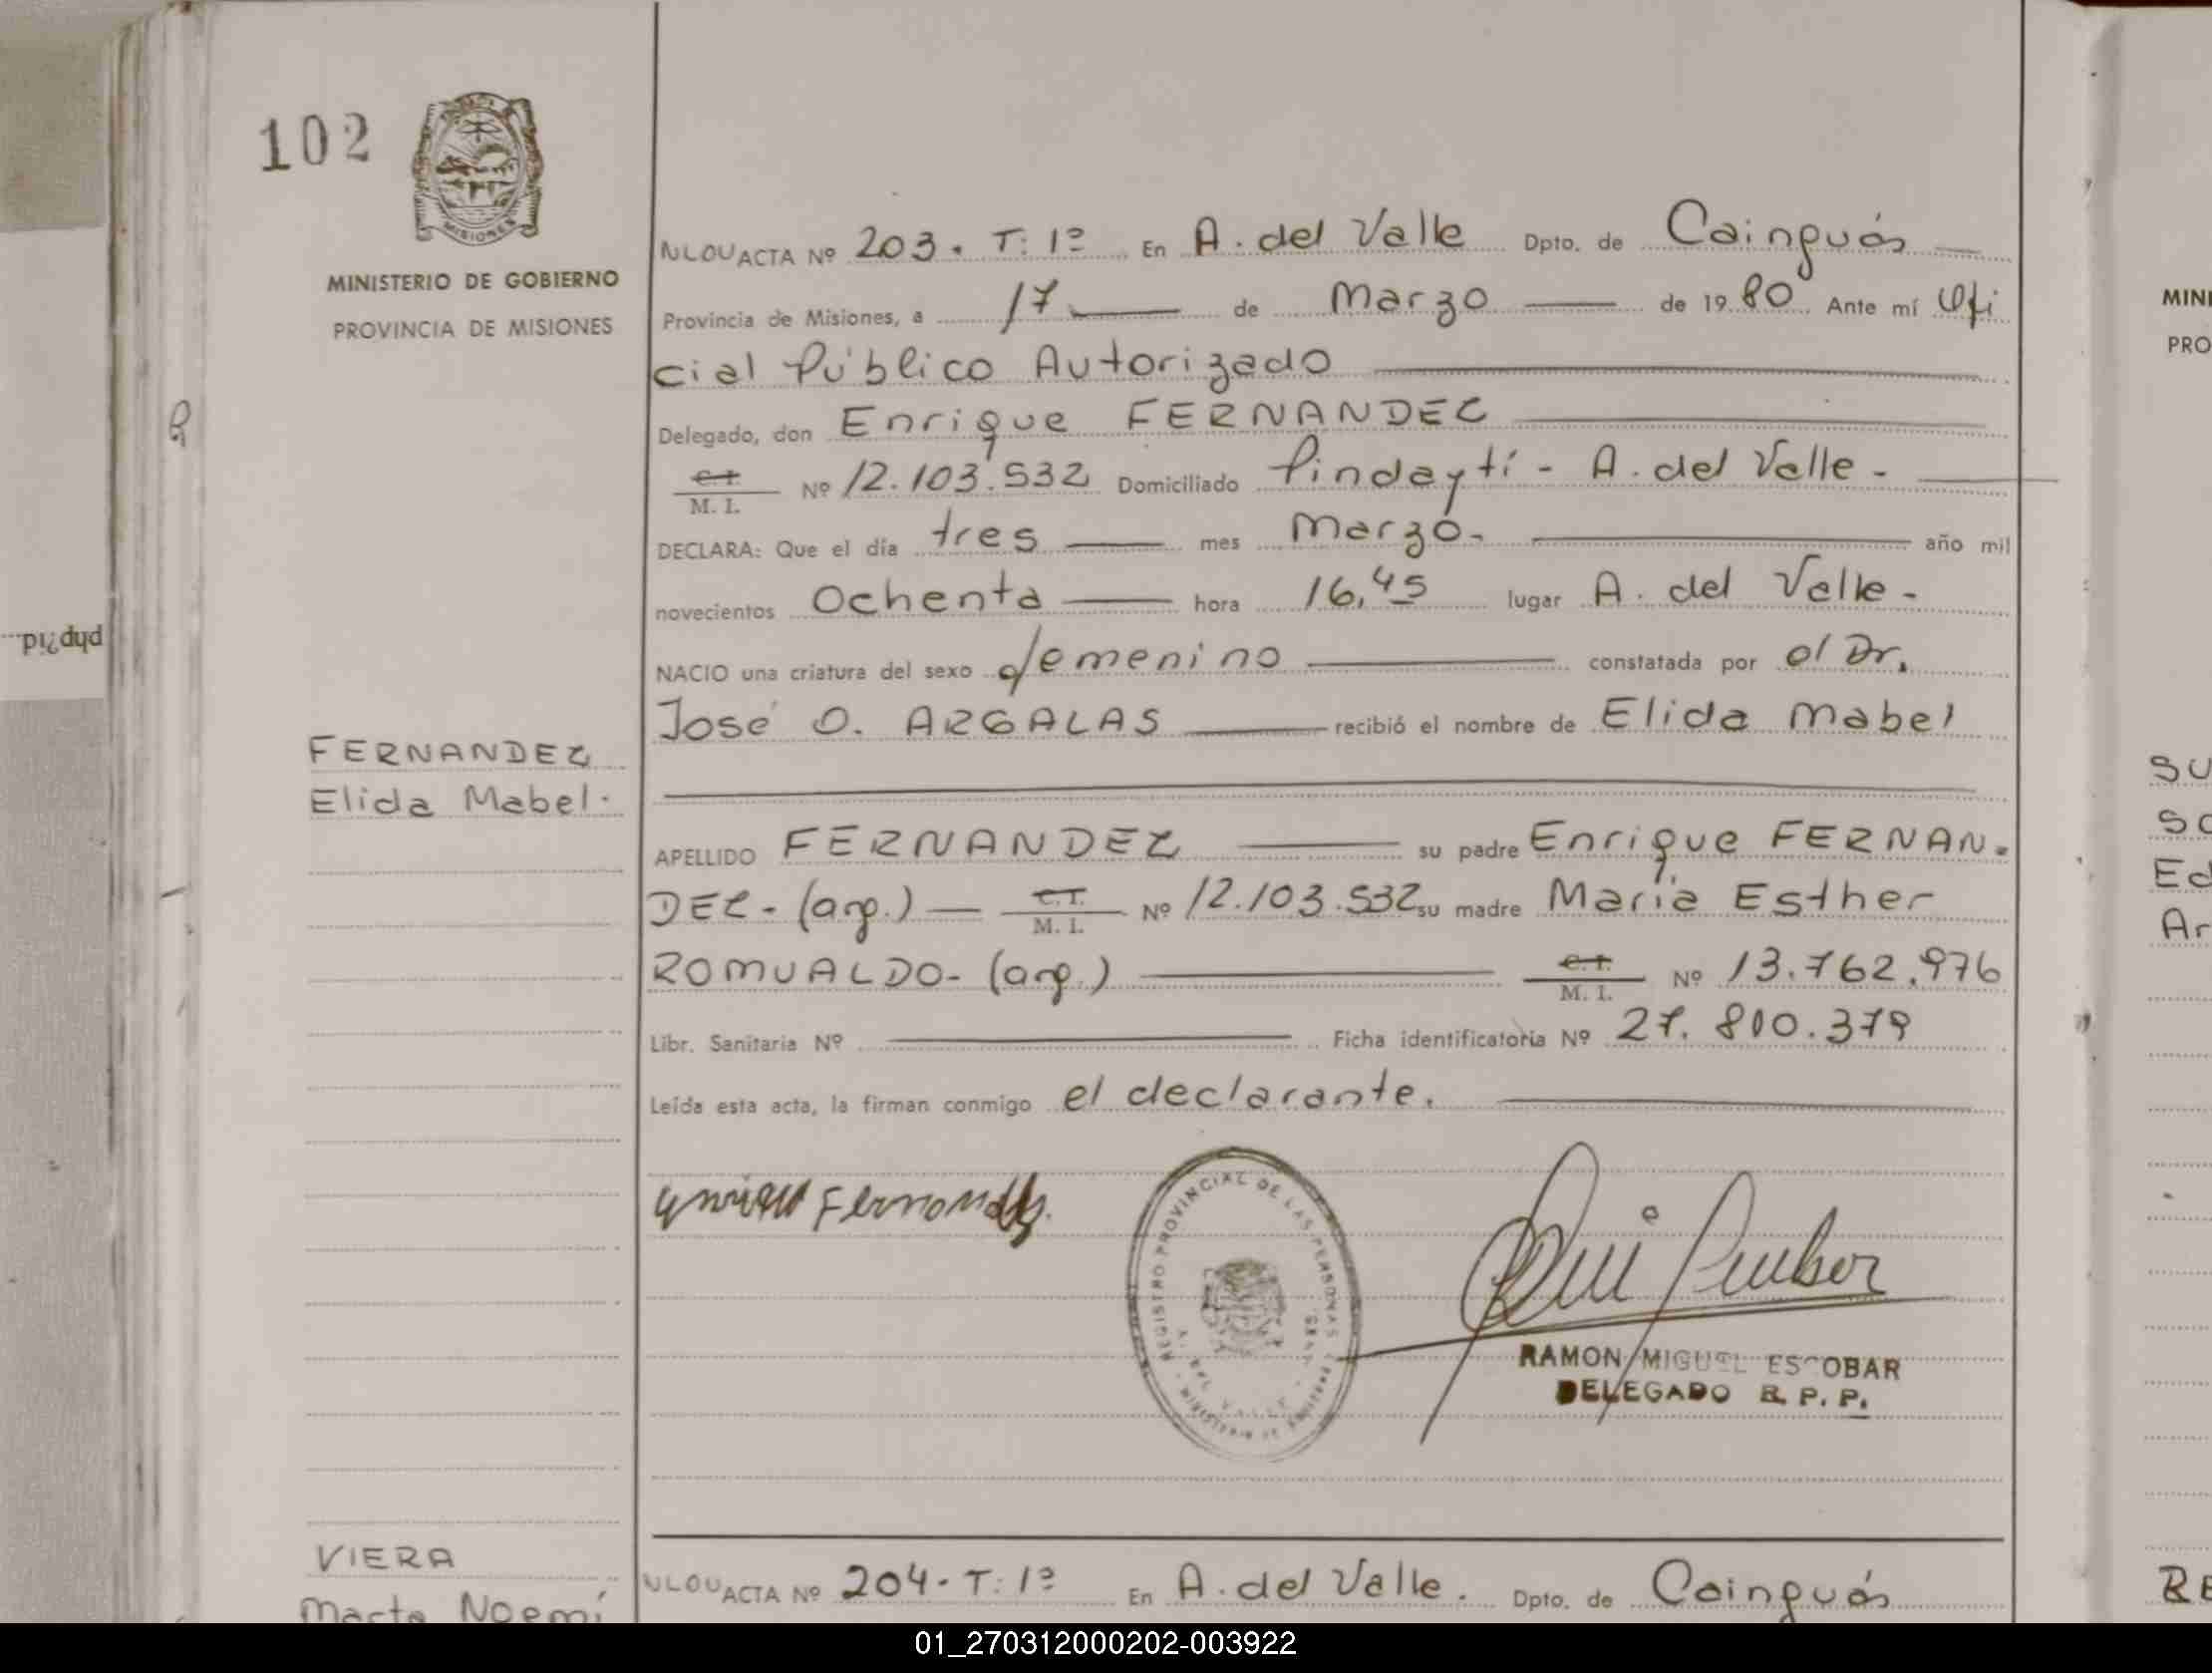 102
MISIONES
MINISTERIO DE GOBIERNO
PROVINCIA DE MISIONES
php?id...
FERNANDEZ
Elida Mabel.
ACTA Nº 203. T: 1º En A. del Valle Dpto. de Cainguás
Provincia de Misiones, a 17 de Marzo de 1980 Ante mí Ofi
cial Público Autorizado
Delegado, don Enrique FERNANDEZ
C.I.
M. I. Nº 12.103.532 Domiciliado Pindaytí - A. del Valle -
DECLARA: Que el día tres mes Marzo. año mil
novecientos Ochenta hora 16,45 lugar A. del Valle -
NACIO una criatura del sexo femenino constatada por el Dr.
José O. ARGALAS recibió el nombre de Elida Mabel
APELLIDO FERNANDEZ su padre Enrique FERNAN-
DEZ - (arg.) C.I.
M. I. Nº 12.103.532 su madre María Esther
ROMUALDO - (arg.) C.I.
M. I. Nº 13.762.976
Libr. Sanitaria Nº Ficha identificatoria Nº 27.800.379
Leída esta acta, la firman conmigo el declarante.
Fernandez.
REGISTRO PROVINCIAL DE LAS PERSONAS
RAMON MIGUEL ESCOBAR
DELEGADO R. P. P.
VIERA
Marta Noemí
ACTA Nº 204. T: 1º En A. del Valle. Dpto. de Cainguás
MINI
PRO
SU
SO
Ed
Ar
RE
01_270312000202-003922